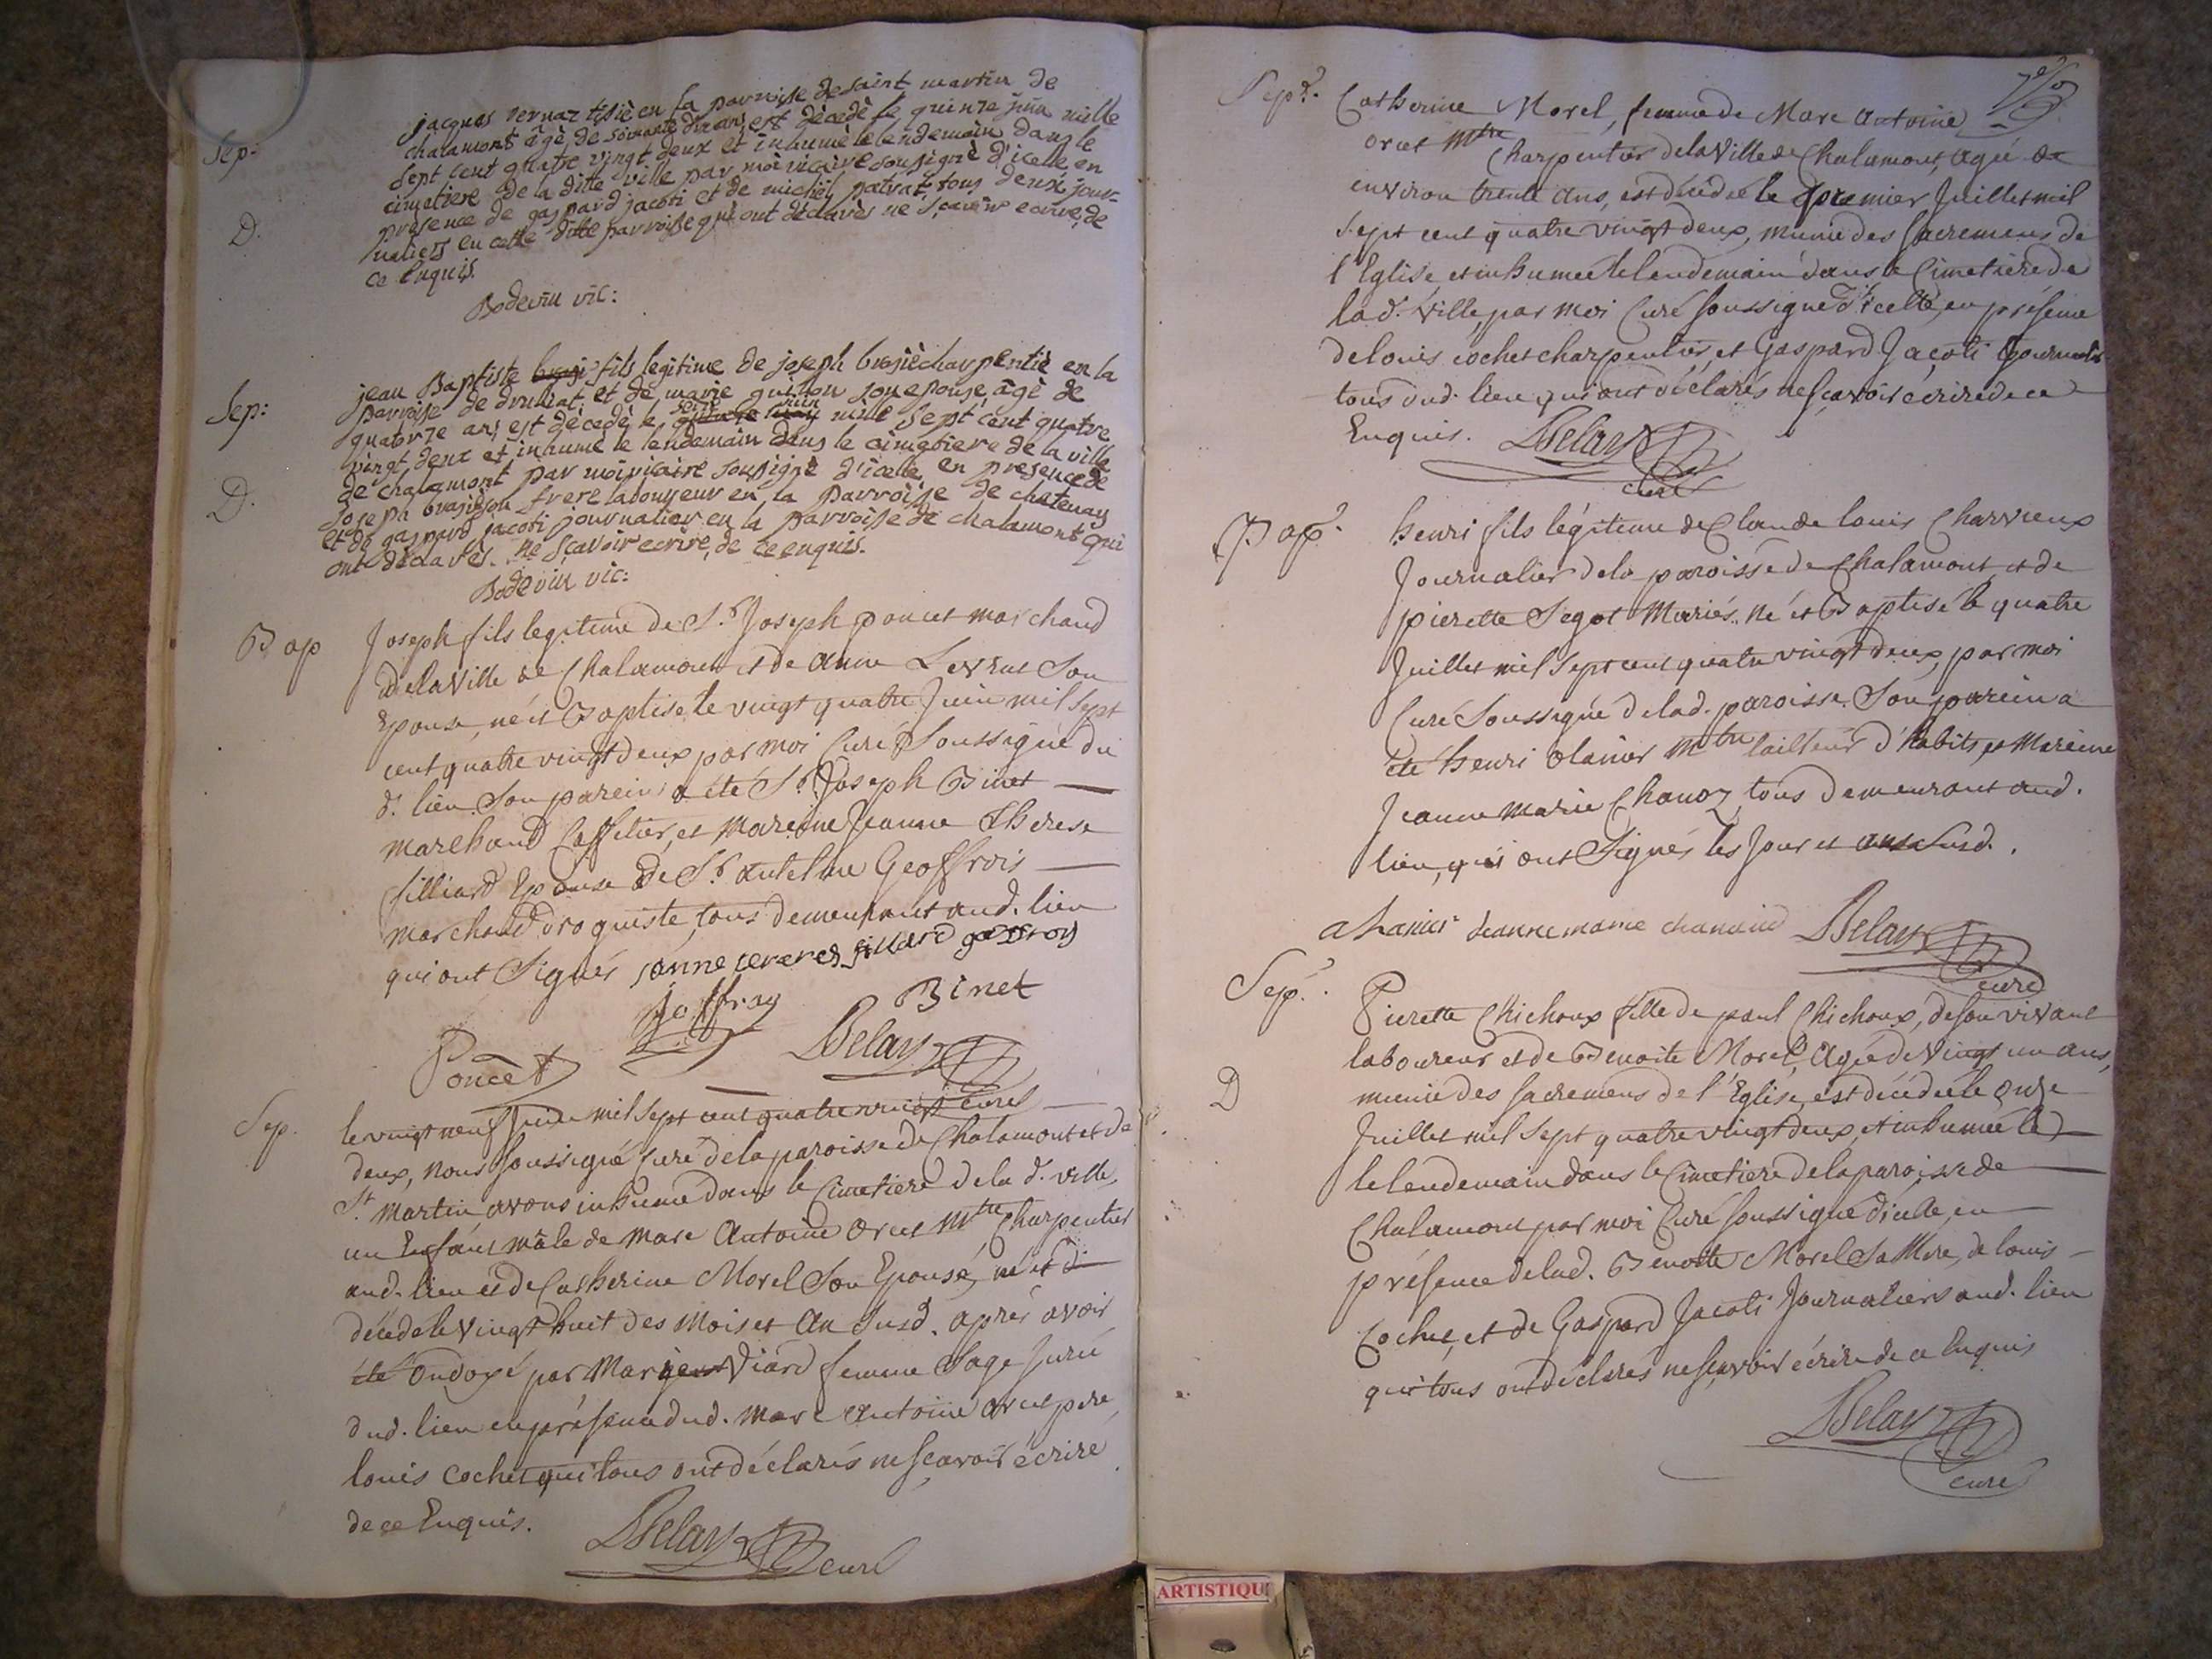 Sep:
D.
jacques vernaz tisiè en la parroisse de saint martin de
chalamont âgè de soixante dix ans est dècedè le quinze juin mille
sept cent quatre vingt deux et inhumè le lendemain dans le
cimetiere de la ditte ville par moi vicaire sousignè d'icelle, en
presence de gaspard jacoti et de michel patrat, tous deux jour-
naliers en cette ditte parroisse qui ont dèclarès ne sçavoir ecrire, de
ce enquis.
Bodevin vic:
Sep:
D.
jean Baptiste fils legitime de joseph brasiè charpentiè en la
parroise de druliat, et de marie guillon son epouse, âgè de
quatorze ans est dècedè le seize juin mille sept cent quatre
vingt deux et inhumè le lendemain dans le cimetiere de la ville
de chalamont par moi vicaire sousignè d'icelle, en presence de
joseph brasiè son frere laboureur en la parroisse de chatenay
et de gaspard jacoti journalier en la parroisse de chalamont qui
ont dèclarès ne sçavoir ecrire, de ce enquis.
Bodevin vic:
Bap
Joseph fils legitime de Sr. Joseph poncet marchand
de la Ville de Chalamont et de anne Levrat Son
Epouse, né et Baptisé le vingt quatre Juin mil sept
cent quatre vingt deux par moi Curé Soussigné du
d. lieu. Son parein a été Sr. Joseph Binet
marchand Caffetier, et Mareine Jeanne Therese
filliard Epouse de Sr. antelme Geoffrois
marchand droguiste, tous demeurant aud. lieu
qui ont Signés janne fillard goffroy
Joffray Binet
Poncet Delay
curé
Sep.
le vingt neuf Juin mil sept cent quatre vingt
deux, nous soussigné Curé de la paroisse de Chalamont et de
St. Martin avons inhumé dans le Cimetiere de la d. ville,
un Enfant mâle de Marc Antoine Orcet Mtre Charpentier
aud. lieu et de Catherine Morel Son Epouse, né et
décédé le vingt huit des mois et an Susd. après avoir
été Ondoyé par Marie Viard femme Sage Jurée
dud. lieu en présence dud. Marc Antoine Orcet pere,
louis Cochet qui tous ont déclarés ne sçavoir écrire
de ce Enquis.
Delay curé
Sept.
Catherine Morel, femme de Marc Antoine
Orcet Mtre Charpentier de la Ville de Chalamont, agée de
environ trente ans, est décédée le premier Juillet mil
sept cent quatre vingt deux, munie des Sacremens de
l'Eglise, et inhumée le lendemain dans le Cimetiere de
la d. Ville, par moi Curé Soussigné d'icelle, en présence
de louis Cochet charpentier, et Gaspard Jacoti Journalier
tous dud. lieu qui ont déclarés ne sçavoir écrire de ce
Enquis. Delay
curé
Bap.
henri fils légitime de Claude louis Charvieux
Journalier de la paroisse de Chalamont, et de
pierette Segot Mariés, né et Baptisé le quatre
Juillet mil sept cent quatre vingt deux, par moi
Curé Soussigné de lad. paroisse. Son parein a
été henri Olanier Mtre tailleur d'habits, et Mareine
Jeanne marie Chanoz, tous demeurant aud.
lieu, qui ont Signés les Jour et an Susd.
Jeanne marie Delay
curé
Sep.
D
Pierette Chichoux fille de paul Chichoux, de son vivant
laboureur et de Benoite Morel, agée de vingt un ans,
munie des Sacremens de l'Eglise, est décédée le onze
Juillet mil sept quatre vingt deux, et inhumée le
le lendemain dans le Cimetiere de la paroisse de
Chalamont par moi Curé Soussigné d'icelle, en
présence de lad. Benoite Morel Sa Mere, de louis
Cochet, et de Gaspard Jacoti Journaliers aud. lieu
qui tous ont déclarés ne sçavoir écrire de ce Enquis
Delay
curé
ARTISTIQU